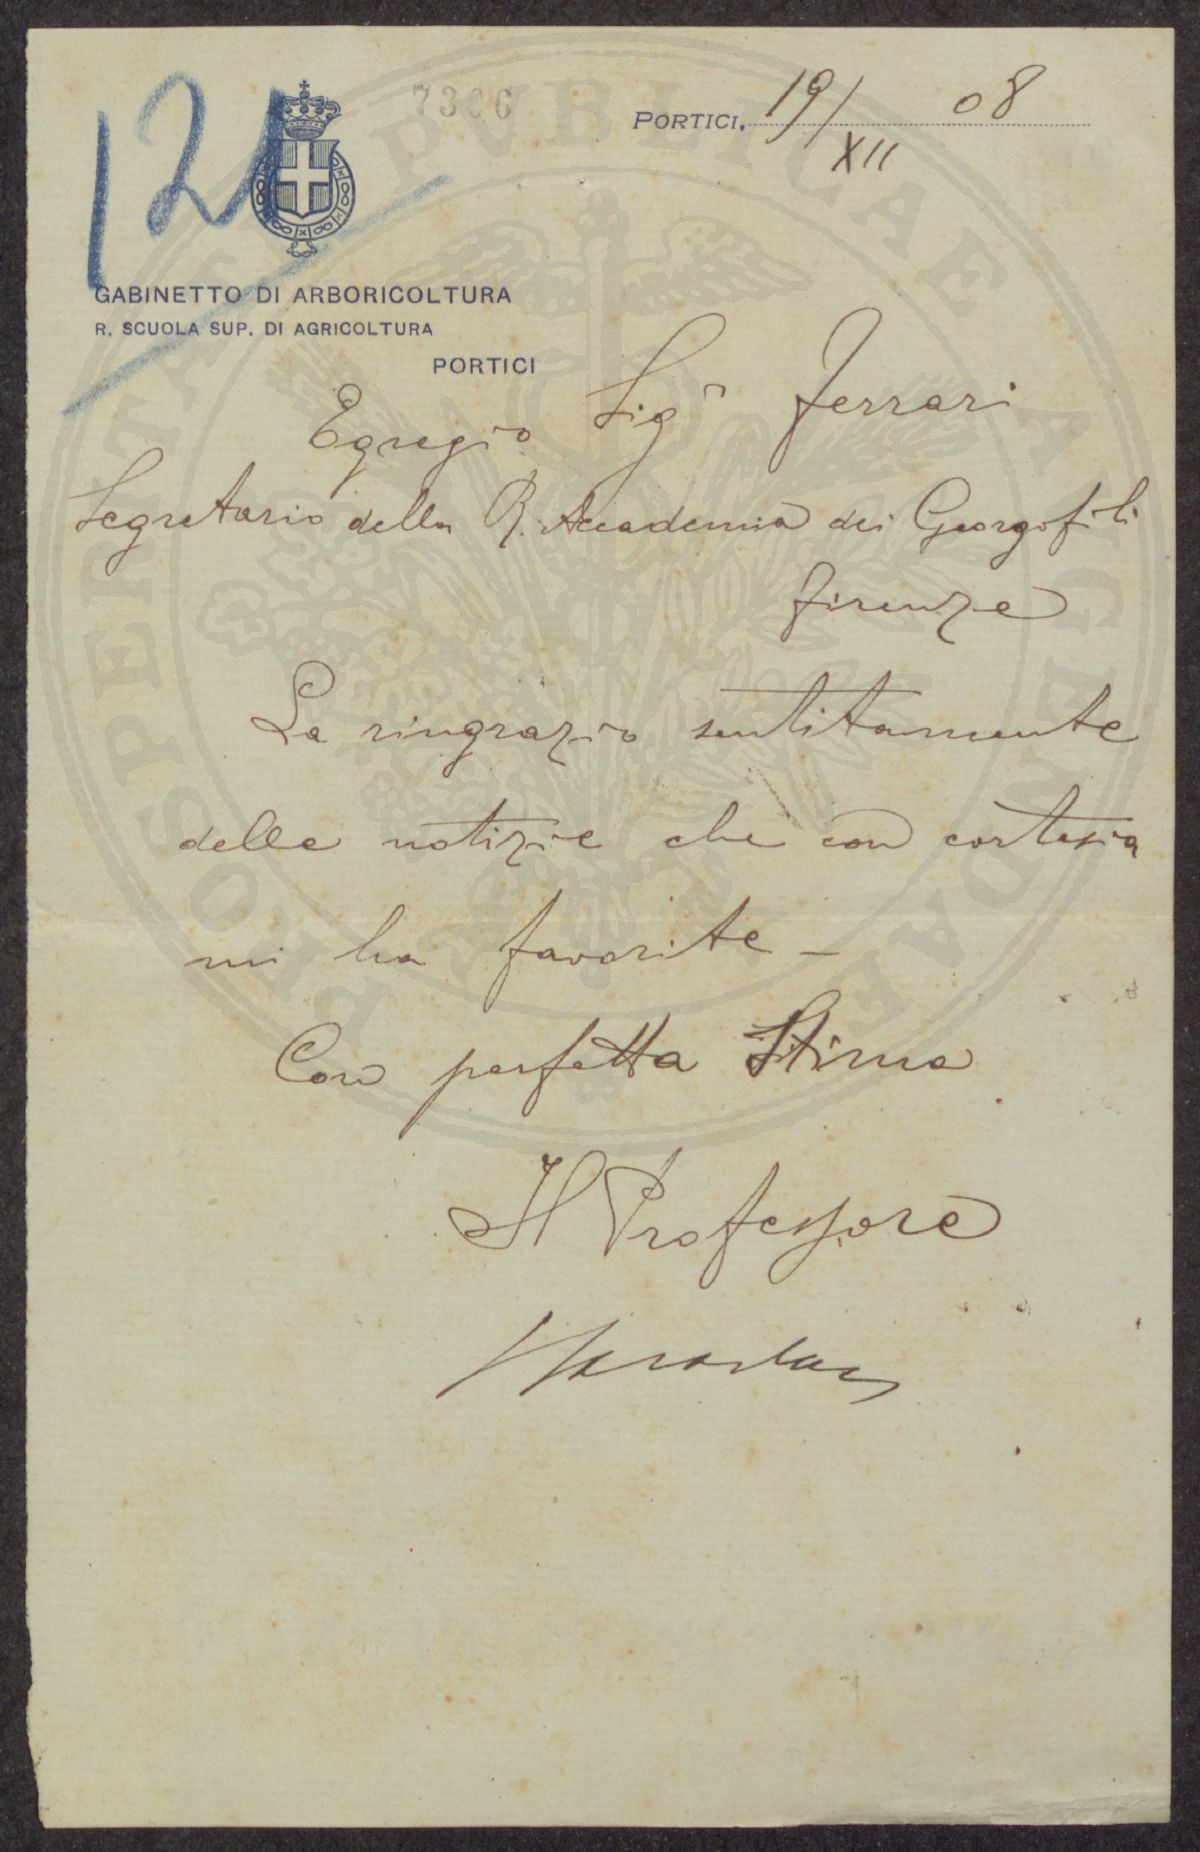 121
7306
PORTICI, 19/XII 08
GABINETTO DI ARBORICOLTURA
R. SCUOLA SUP. DI AGRICOLTURA
PORTICI
Egregio Sigr Ferrari
Segretario della R. Accademia dei Georgofili
Firenze
La ringrazio sentitamente
delle notizie che con cortesia
mi ha favorite –
Con perfetta Stima
Il Professore
PROSPERITATI PUBLICAE AUGENDAE